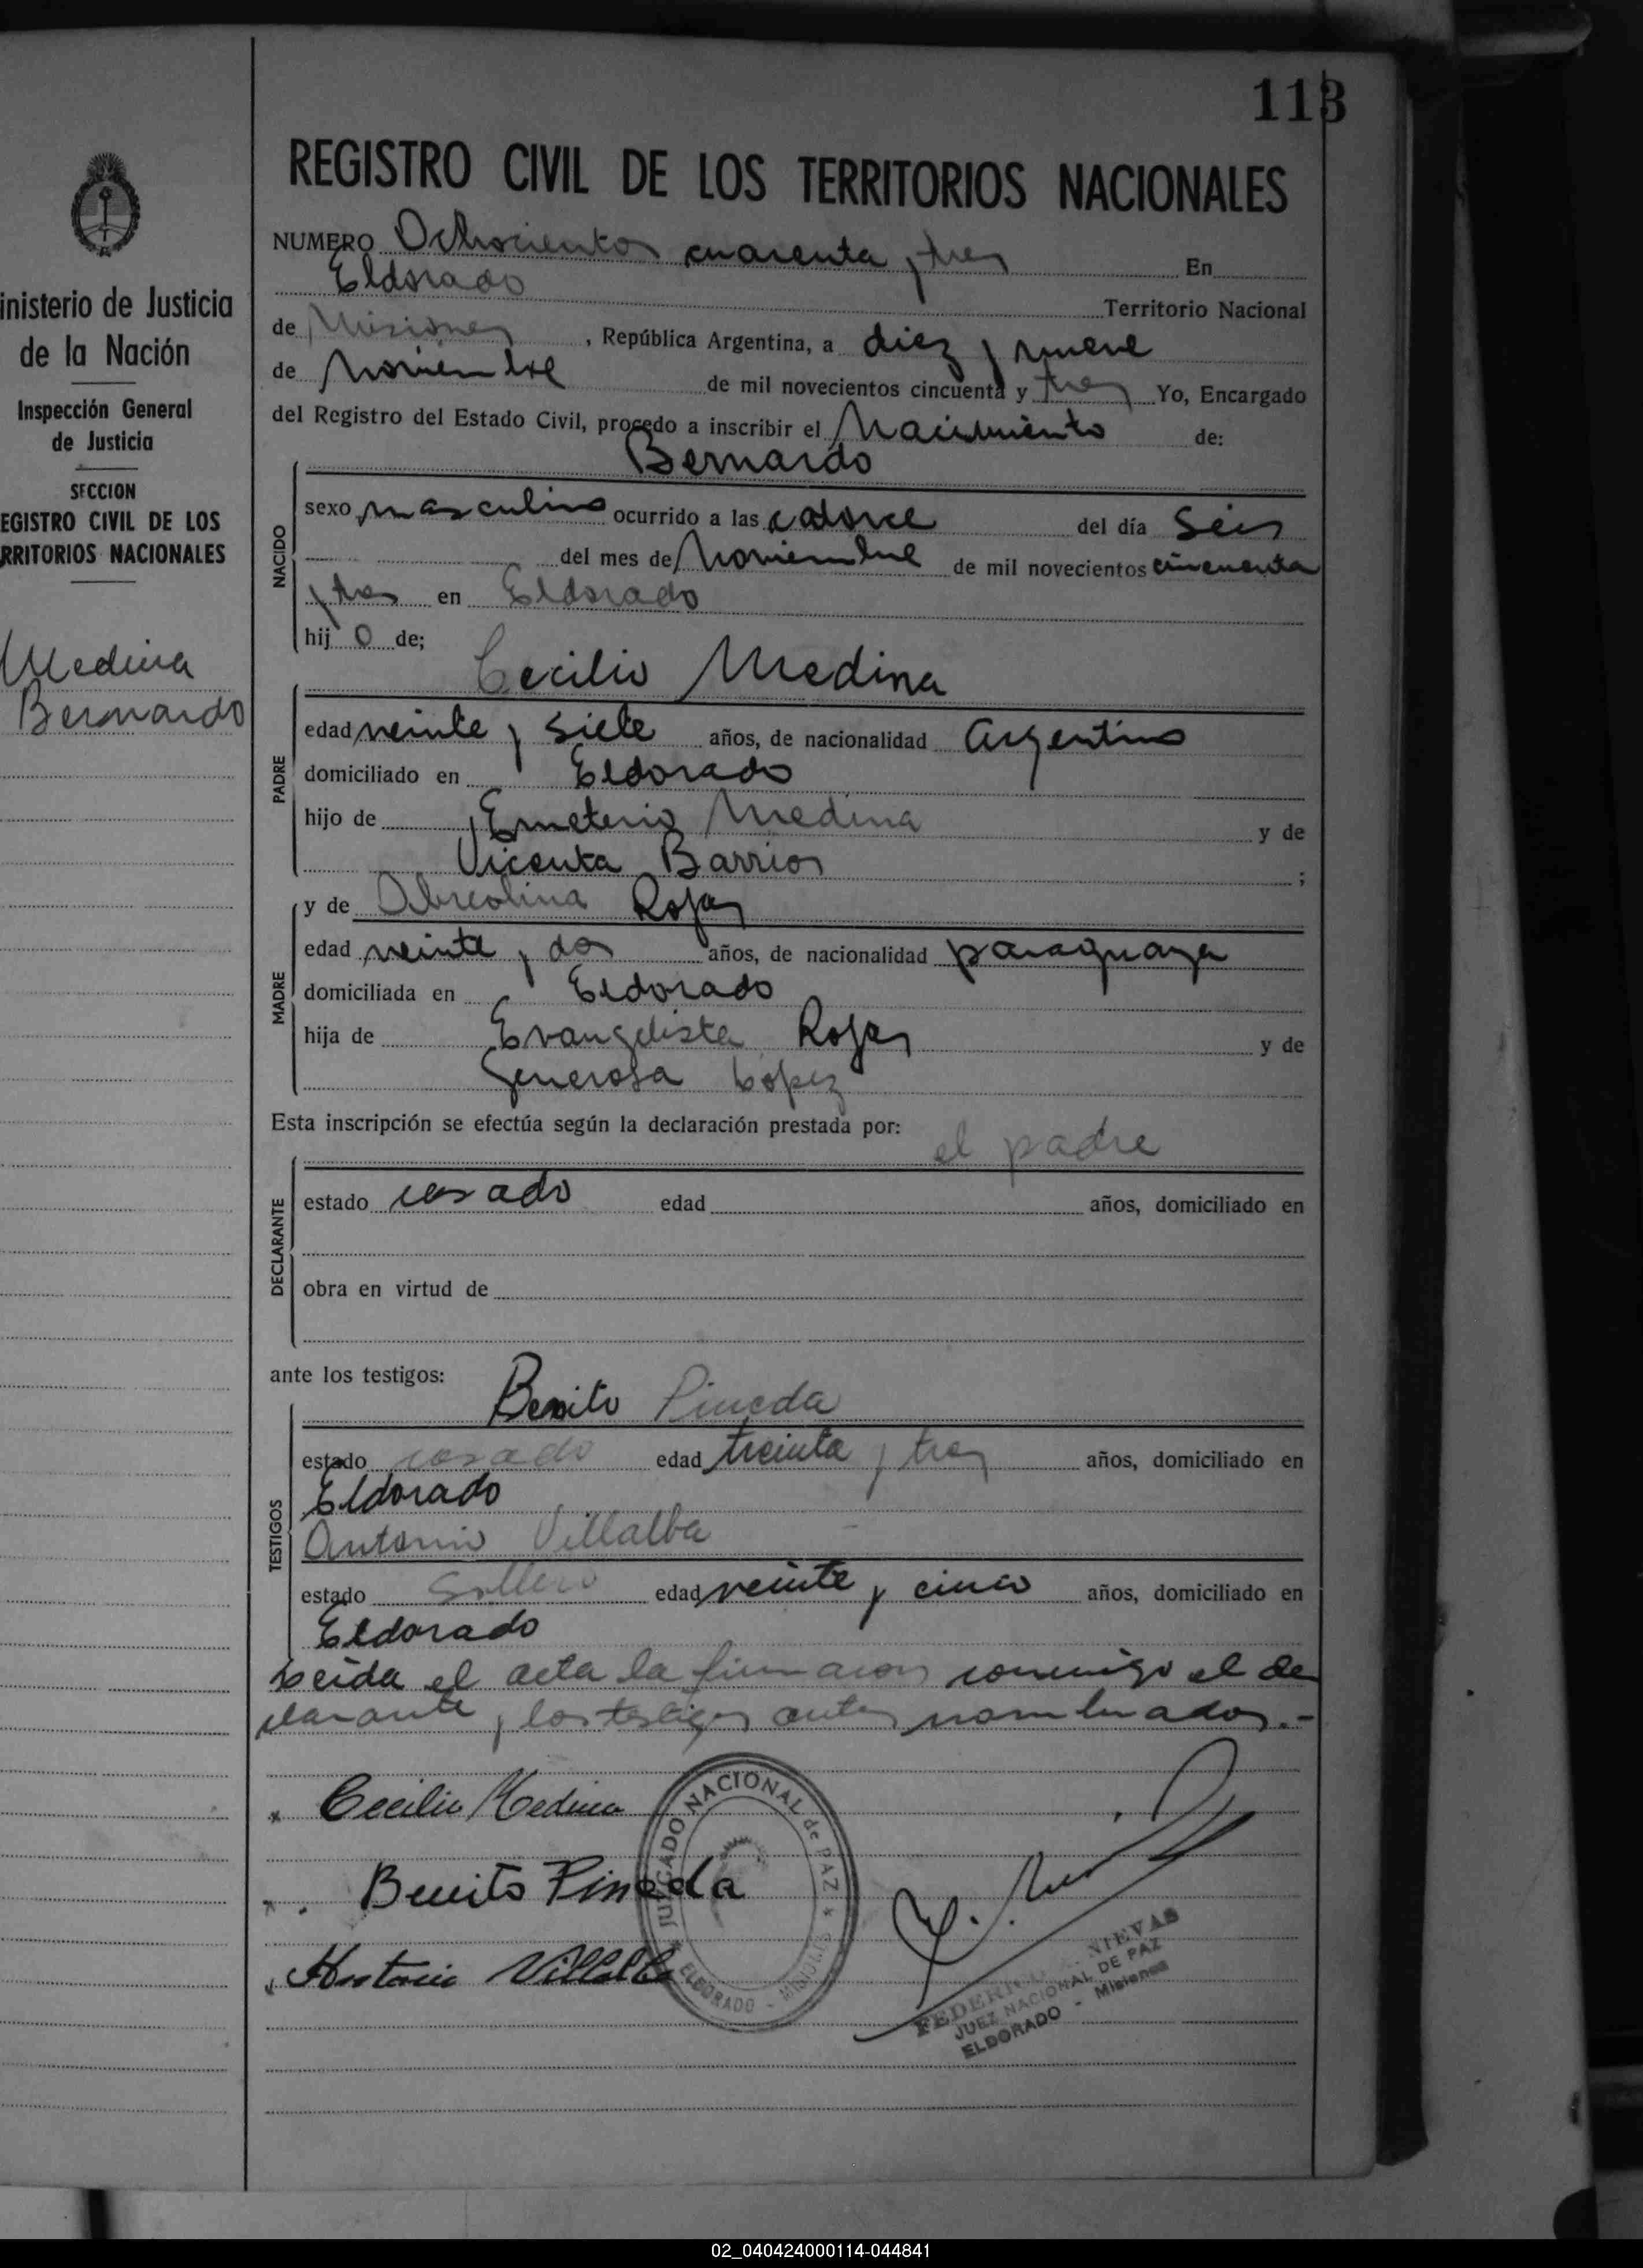 113
REGISTRO CIVIL DE LOS TERRITORIOS NACIONALES
inisterio de Justicia
de la Nación
Inspección General
de Justicia
SECCION
EGISTRO CIVIL DE LOS
RRITORIOS NACIONALES
Medina
Bernardo
NUMERO Ochocientos cuarenta y tres En
Eldorado Territorio Nacional
de Misiones, República Argentina, a diez y nueve
de Noviembre de mil novecientos cincuenta y tres Yo, Encargado
del Registro del Estado Civil, procedo a inscribir el Nacimiento de:
Bernardo
NACIDO
sexo masculino ocurrido a las catorce del día Seis
del mes de Noviembre de mil novecientos cincuenta
y tres en Eldorado
hij o de;
Cecilio Medina
PADRE
edad veinte y siete años, de nacionalidad argentino
domiciliado en Eldorado
hijo de Emeterio Medina y de
Vicenta Barrios ;
MADRE
y de Rojas
edad veinte y dos años, de nacionalidad paraguaya
domiciliada en Eldorado
hija de Evangelista Rojas y de
Generosa Lopez
Esta inscripción se efectúa según la declaración prestada por:
el padre
DECLARANTE
estado casado edad años, domiciliado en
obra en virtud de
ante los testigos:
Benito Pineda
TESTIGOS
estado casado edad treinta y tres años, domiciliado en
Eldorado
Antonio Villalba
estado Soltero edad veinte y cinco años, domiciliado en
Eldorado
Leida el acta la firmaron conmigo el de
clarante y los testigos antes nombrados.-
Cecilio Medina
Benito Pineda
Antonio Villalba
JUZGADO NACIONAL de PAZ * ELDORADO - MISIONES *
NIEVAS
JUEZ NACIONAL DE PAZ
ELDORADO - Misiones
02_040424000114-044841